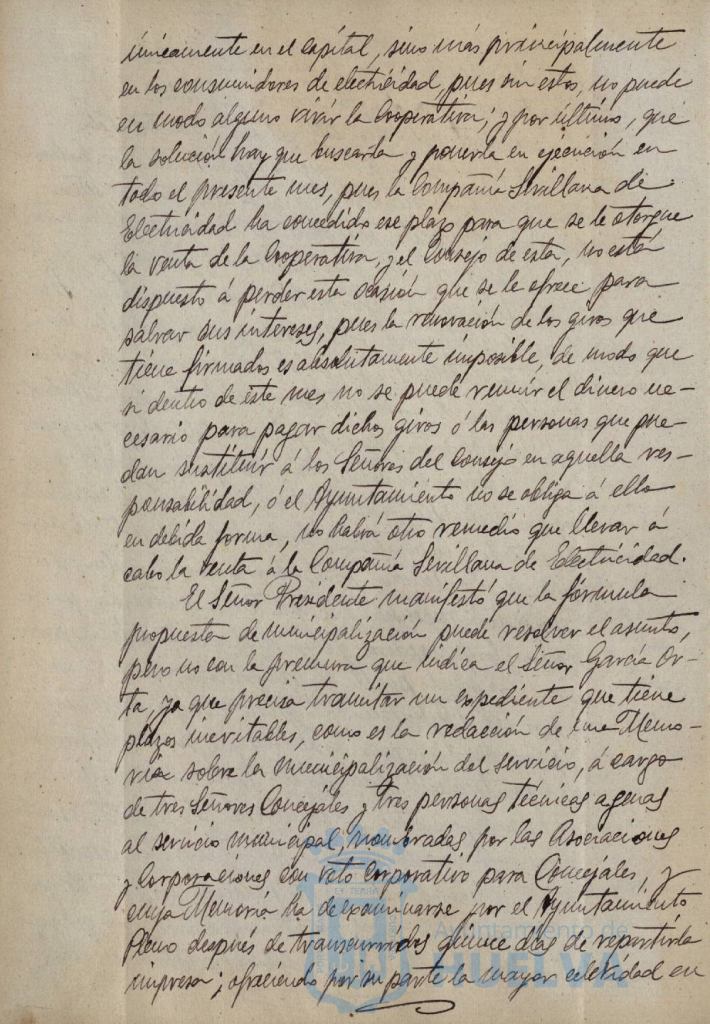 únicamente en el capital, sino más principalmente
en los consumidores de electricidad, pues sin estos, no puede
en modo alguno vivir la Cooperativa; y por último, que
la solución hay que buscarla y ponerla en ejecución en
todo el presente mes, pues la Compañía Sevillana de
Electricidad ha concedido ese plazo para que se le otorgue
la venta de la Cooperativa, y el Consejo de esta, no está
dispuesto á perder esta ocasión que se le ofrece para
salvar sus intereses, pues la renovación de los giros que
tiene firmados es absolutamente imposible, de modo que
si dentro de este mes no se puede reunir el dinero ne-
cesario para pagar dichos giros ó las personas que pue-
dan sustituir á los Señores del Consejo en aquella res-
ponsabilidad, ó el Ayuntamiento no se obliga á ello
en debida forma, no habrá otro remedio que llevar á
cabo la venta á la Compañía Sevillana de Electricidad.
El Señor Presidente manifestó que la fórmula
propuesta de municipalización puede resolver el asunto,
pero no con la premura que indica el Señor García Or-
ta, ya que precisa tramitar un expediente que tiene
plazos inevitables, como es la redacción de una Memo-
ria sobre la municipalización del servicio, á cargo
de tres Señores Concejales y tres personas técnicas agenas
al servicio municipal, nombradas por las Asociaciones
y Corporaciones con voto Corporativo para Concejales, y
cuya Memoria ha de examinarse por el Ayuntamiento
Pleno después de transcurridos quince días de repartirla
impresa; ofreciendo por su parte la mayor celeridad en
Ayuntamiento de
HUELVA